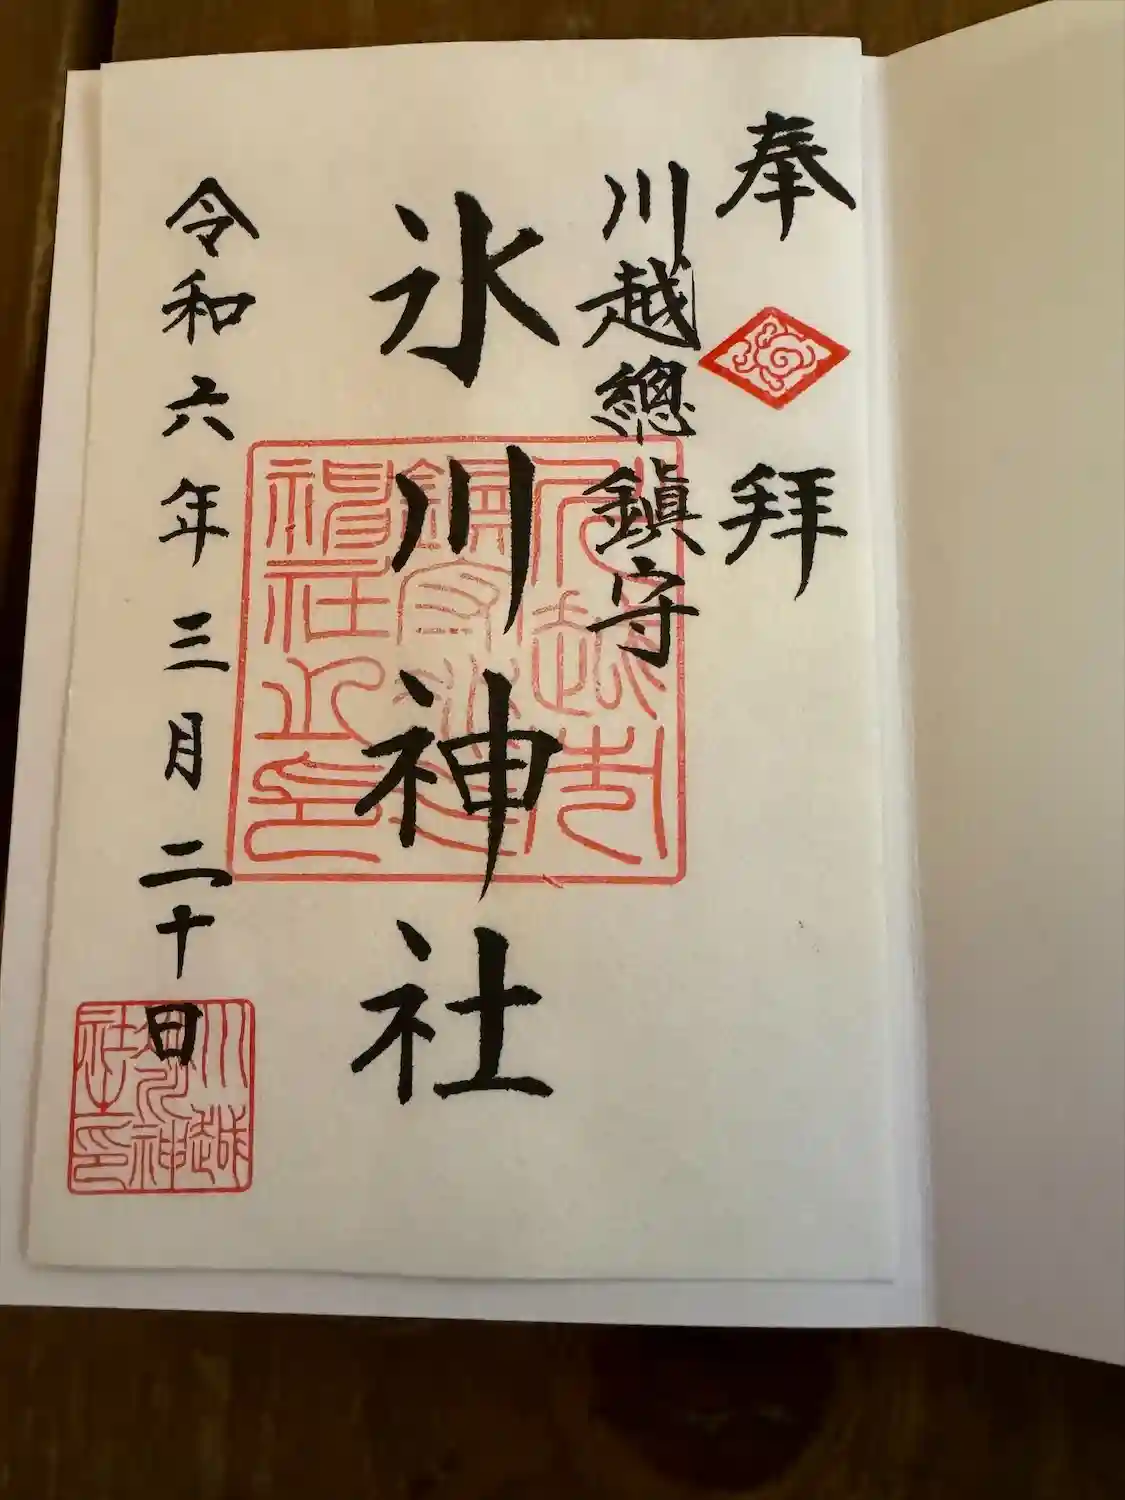 奉拝
川越總鎮守
氷川神社
令和六年三月二十日